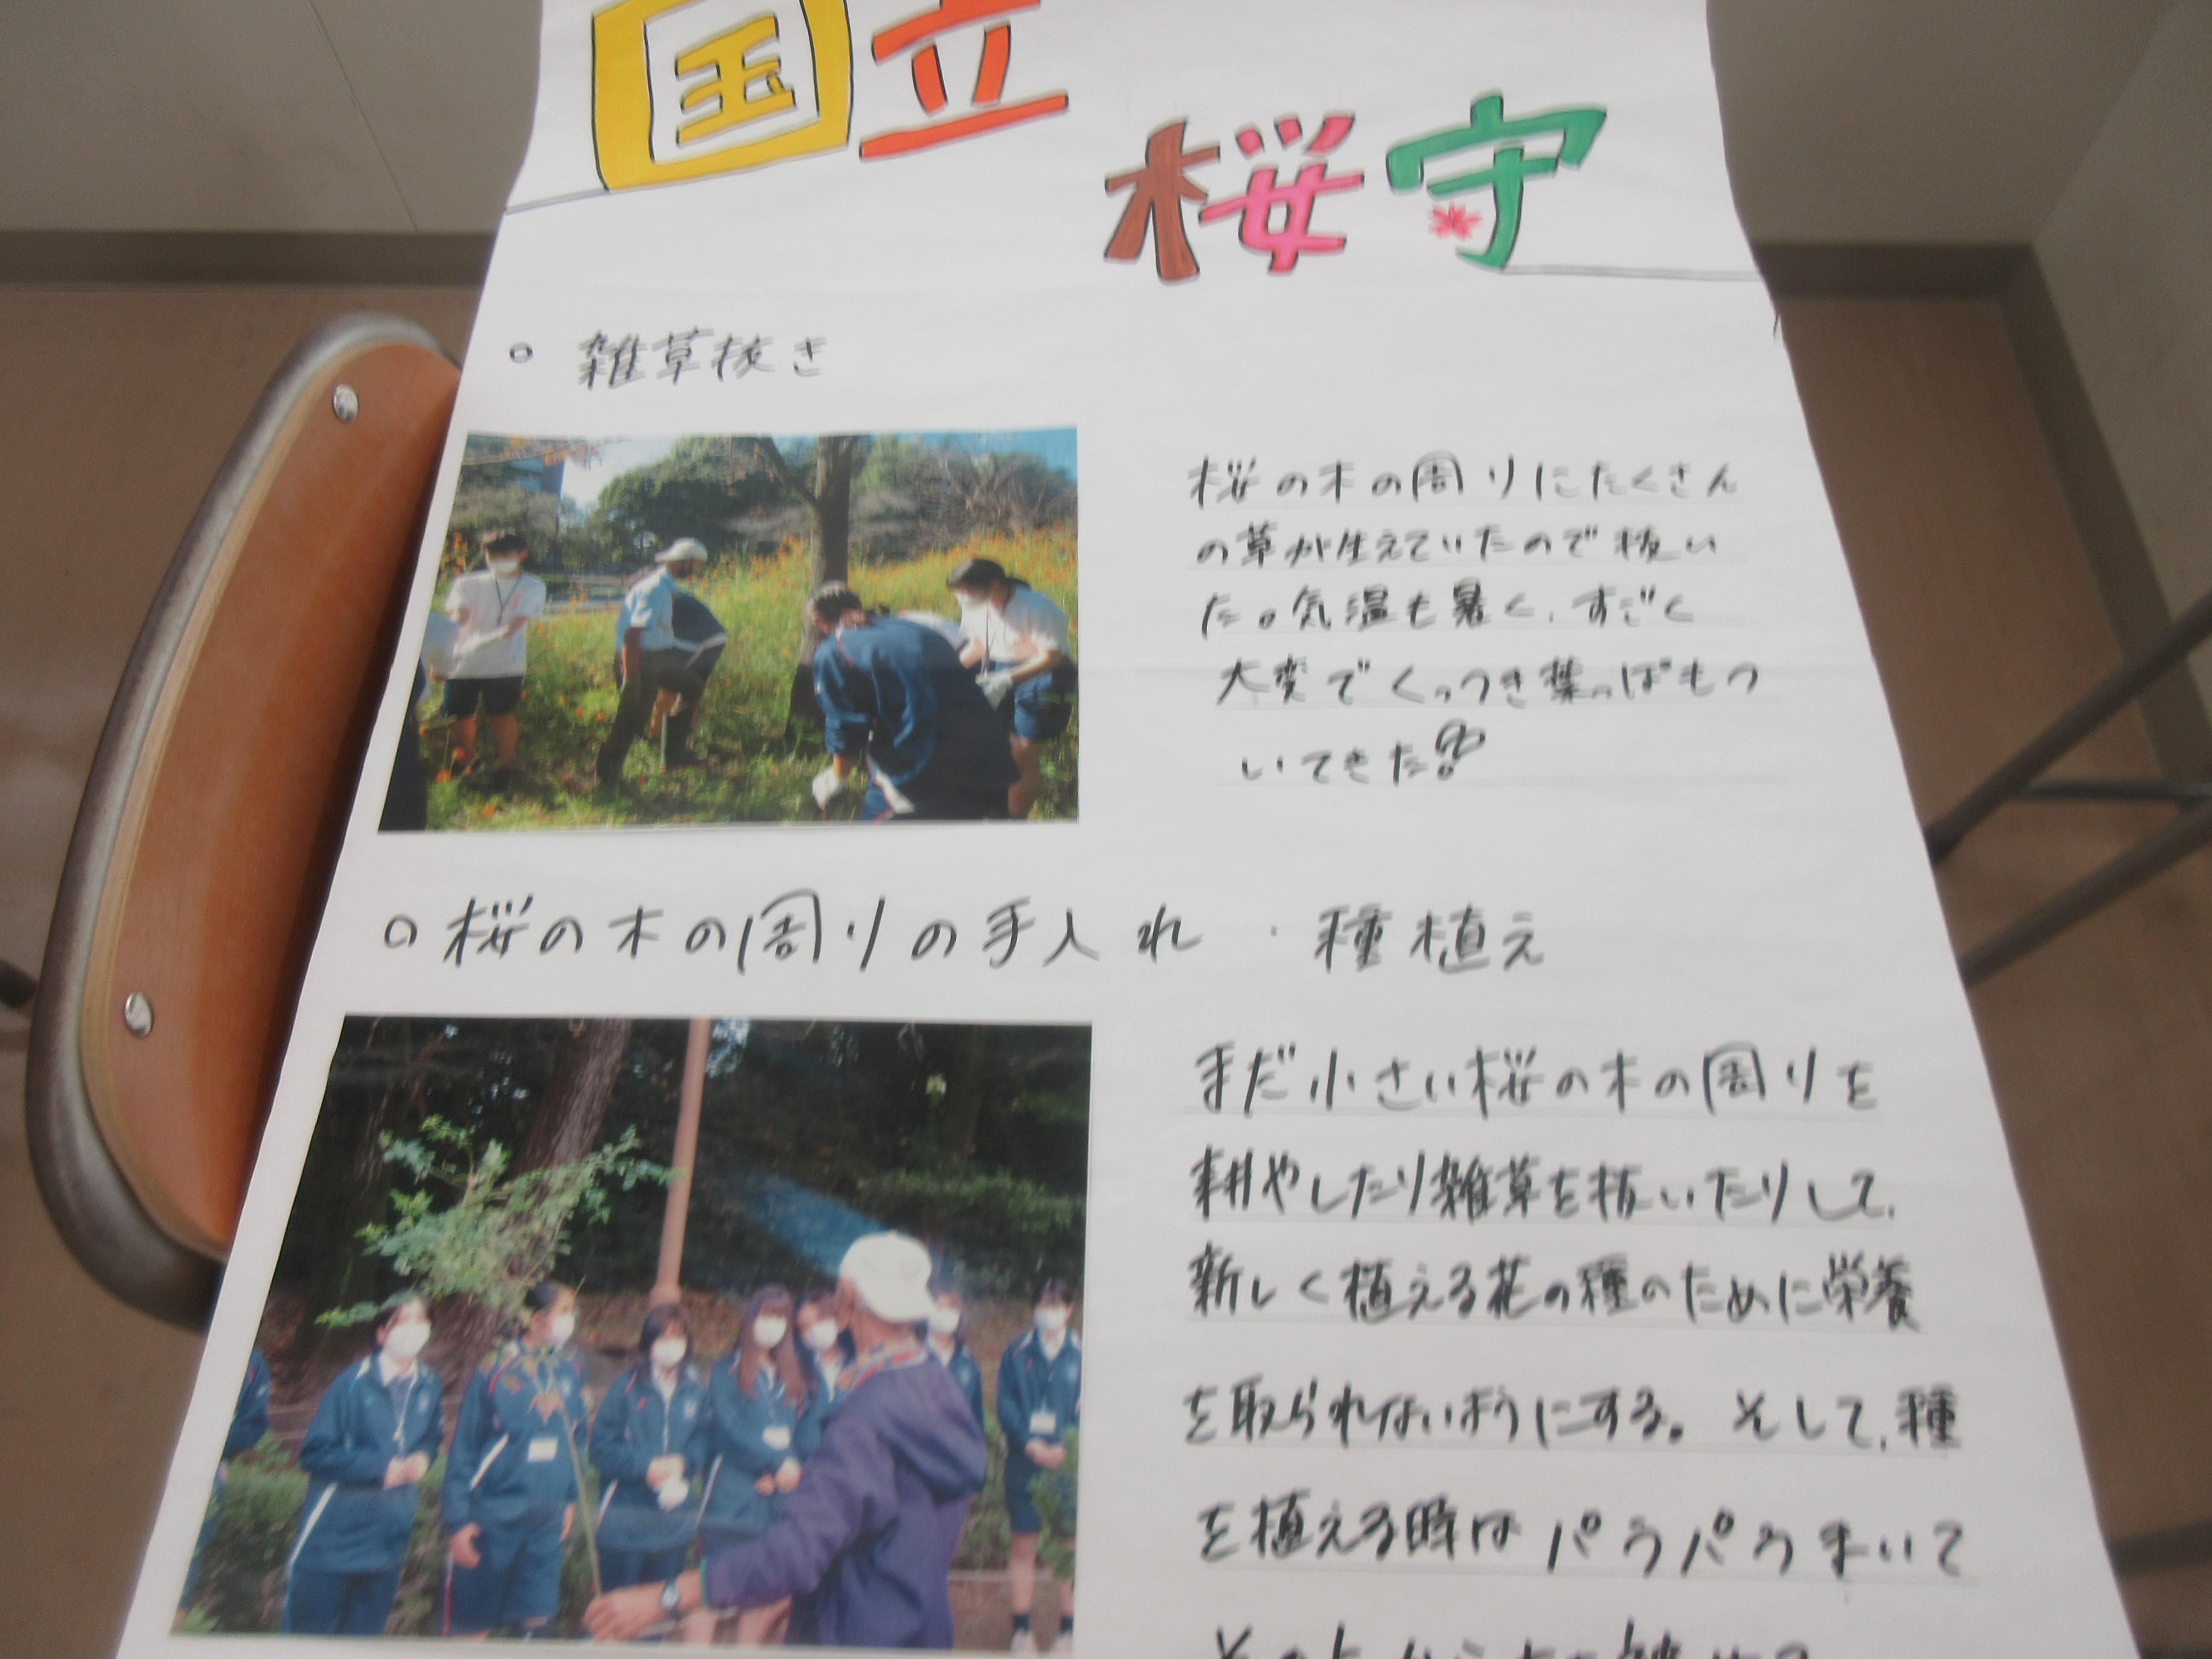 国立
桜守
○ 雑草抜き
桜の木の周りにたくさん
の草が生えていたので抜い
た。気温も暑く、すごく
大変でくっつき葉っぱもつ
いてきた!!
○桜の木の周りの手入れ・種植え
まだ小さい桜の木の周りを
耕やしたり雑草を抜いたりして、
新しく植える花の種のために栄養
を取られないようにする。そして、種
を植える時はパラパラまいて